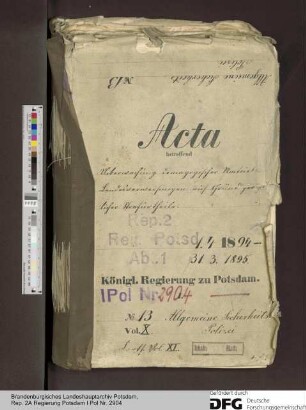 Allgemeine Sicherheits
Polizei
No 13
Acta
betreffend
Ueberwachung
Landesverweisungen auf Grund
Rep. 2
Reg. Potsd
Abt. 1
1. 4. 1894 -
31 3. 1895
Königl. Regierung zu Potsdam.
I Pol Nr. 2904
No 13 Allgemeine Sicherheits
Vol. X Polizei
Vol XI.
Brandenburgisches Landeshauptarchiv Potsdam,
Rep. 2A Regierung Potsdam I Pol Nr. 2904
Gefördert durch
DFG Deutsche
Forschungsgemeinschaft